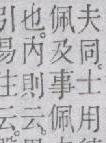 夫同。士用
佩及事佩
也。内則云。
引易
云。